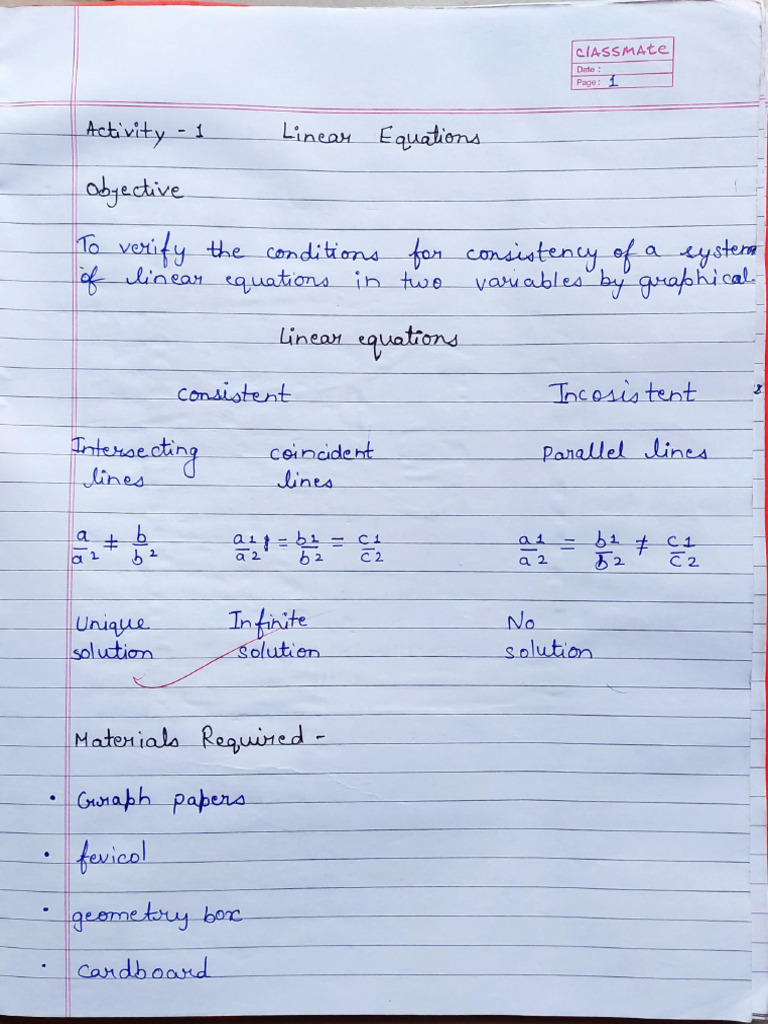 CLASSMATE
Date :
Page : 1
Activity - 1 Linear Equations
Objective
To verify the conditions for consistency of a system
of linear equations in two variables by graphical.
Linear equations
consistent Incosistent
Intersecting coincident Parallel lines
lines lines
a/a2 ≠ b/b2 a1/a2 = b1/b2 = c1/c2 a1/a2 = b1/b2 ≠ c1/c2
Unique Infinite No
solution solution solution
Materials Required -
• Graph papers
• fevicol
• geometry box
• cardboard